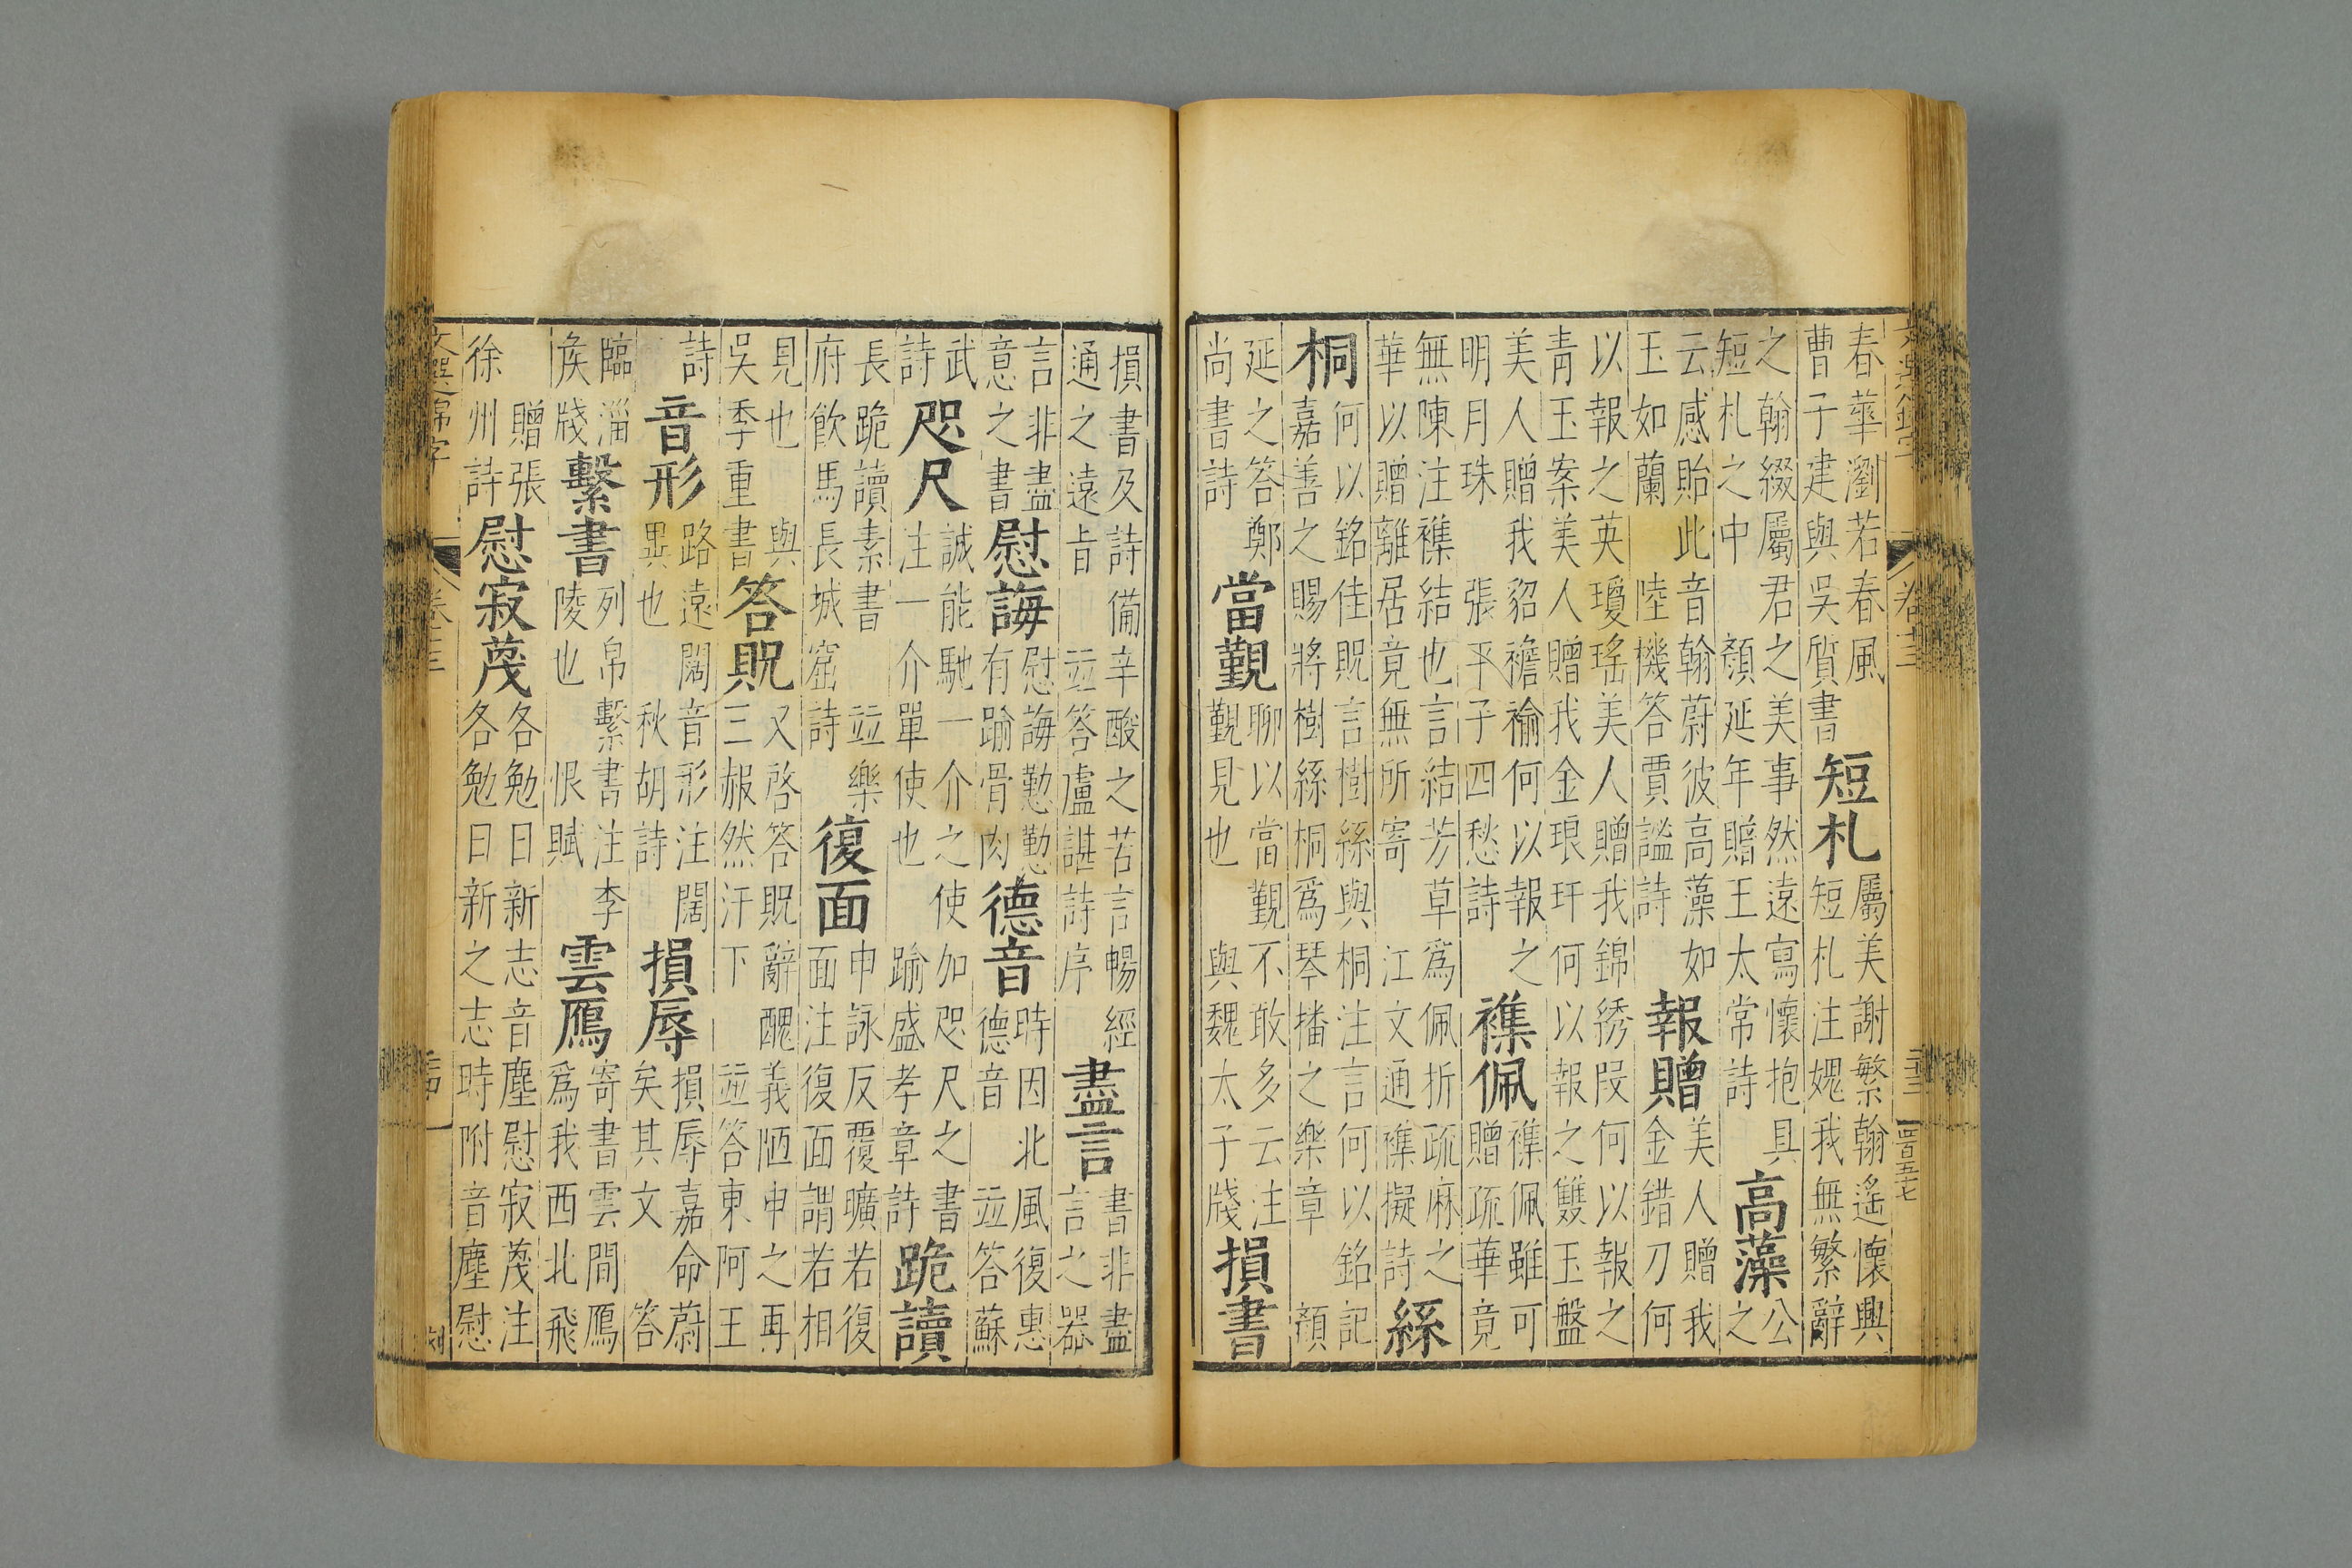 文選錦字 卷十三 二十三 四百五十七
春華瀏若春風
曹子建與吳質書
短札
屬美謝繁翰遙懷興
短札注媿我無繁辭
之翰綴屬君之美事然遠寫懷抱具
短札之中 顏延年贈王太常詩
高藻
公
之
云感貽此音翰蔚彼高藻如
玉如蘭 陸機答賈謐詩
報贈
美人贈我
金錯刀何
以報之英瓊瑤美人贈我錦綉段何以報之
青玉案美人贈我金琅玕何以報之雙玉盤
美人贈我貂襜褕何以報之
明月珠 張平子四愁詩
襍佩
襍佩雖可
贈疏華竟
無陳注襍結也言結芳草爲佩折疏麻之
華以贈離居竟無所寄 江文通襍擬詩
絲
桐
何以銘佳貺言樹絲與桐注言何以銘記
嘉善之賜將樹絲桐爲琴播之樂章 顏
延之答鄭
尚書詩
當覲
聊以當覲不敢多云注
覲見也 與魏太子牋
損書
損書及詩備辛酸之苦言暢經
通之遠旨 並答盧諶詩序
盡言
書非盡
言之器
言非盡
意之書
慰誨
慰誨懃懃
有踰骨肉
德音
時因北風復惠
德音 並答蘇
武
詩
咫尺
誠能馳一介之使加咫尺之書
注一介單使也 踰盛孝章詩
跪讀
長跪讀素書 並樂
府飲馬長城窟詩
復面
申詠反覆曠若復
面注復面謂若相
見也 與
吳季重書
答貺
又啓答貺辭醜義陋申之再
三赧然汗下 並答東阿王
詩
音形
路遠闊音形注闊
異也 秋胡詩
損辱
損辱嘉命蔚
矣其文 答
臨淄
矦牋
繫書
列帛繫書注李
陵也 恨賦
雲鴈
寄書雲間鴈
爲我西北飛
贈張
徐州詩
慰寂蔑
各勉日新志音塵慰寂蔑注
各勉日新之志時附音塵慰
文選錦字 卷十三